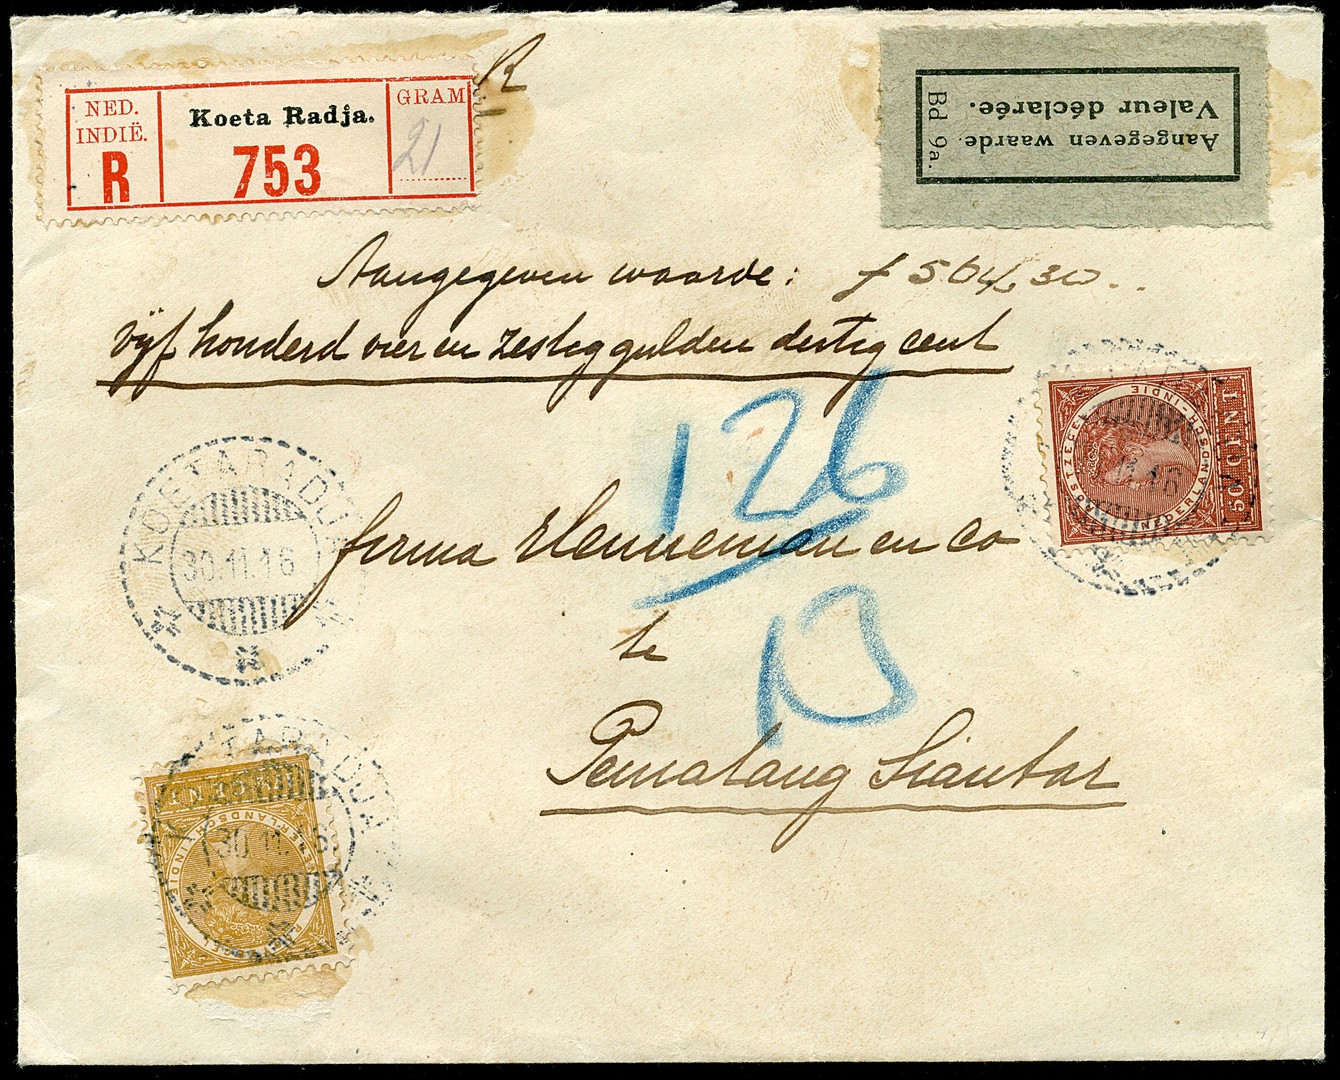 NED.
INDIË.
R
Koeta Radja.
753
GRAM
21
R
Aangegeven waarde.
Valeur déclarée.
Bd 9a.
Aangegeven waarde: f 564,30
vijf honderd vier en zestig gulden dertig cent
126
13
KOETARADJA
30.11.16
50 CENT
POSTZEGEL
NEDERLANDSCH-INDIE
firma Henneman en Co
te
Pematang Siantar
KOETARADJA
30.11.16
NEDERLANDSCH INDIE